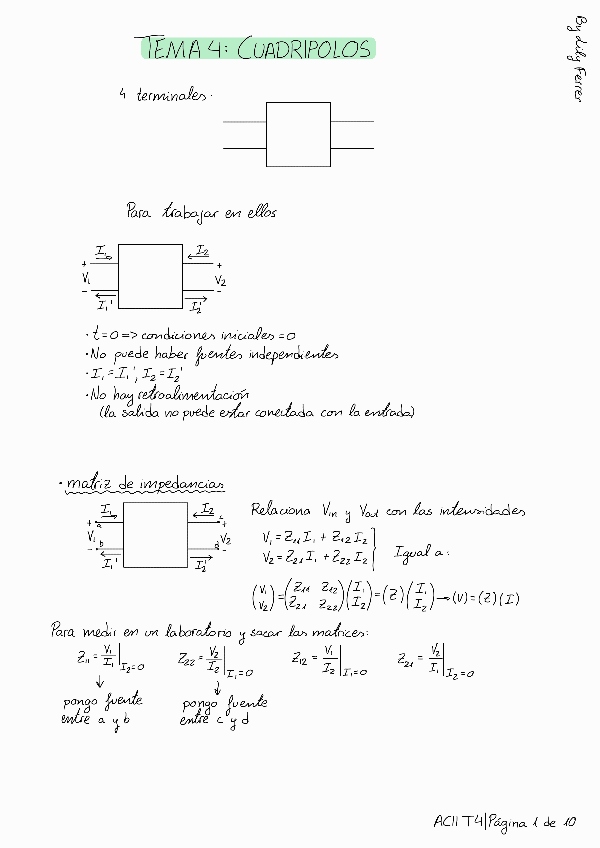 TEMA 4: CUADRIPOLOS
By Lily Ferrer
4 terminales.
Para trabajar en ellos
I₁ I₂
+ +
V₁ V₂
- -
I₁' I₂'
· t=0 => condiciones iniciales =0
· No puede haber fuentes independientes
· I₁ = I₁', I₂ = I₂'
· No hay retroalimentación
(la salida no puede estar conectada con la entrada)
· matriz de impedancias
I₁ I₂
+ a c +
V₁ V₂
- b d -
I₁' I₂'
Relaciona Vin y Vout con las intensidades
V₁ = Z₁₁ I₁ + Z₁₂ I₂
V₂ = Z₂₁ I₁ + Z₂₂ I₂
Igual a:
(V₁ V₂) = (Z₁₁ Z₁₂ Z₂₁ Z₂₂) (I₁ I₂) = (Z) (I₁ I₂) → (V) = (Z) (I)
Para medir en un laboratorio y sacar las matrices:
Z₁₁ = V₁/I₁ | I₂=0 Z₂₂ = V₂/I₂ | I₁=0 Z₁₂ = V₁/I₂ | I₁=0 Z₂₁ = V₂/I₁ | I₂=0
↓ ↓
pongo fuente pongo fuente
entre a y b entre c y d
ACII T4|Página 1 de 10